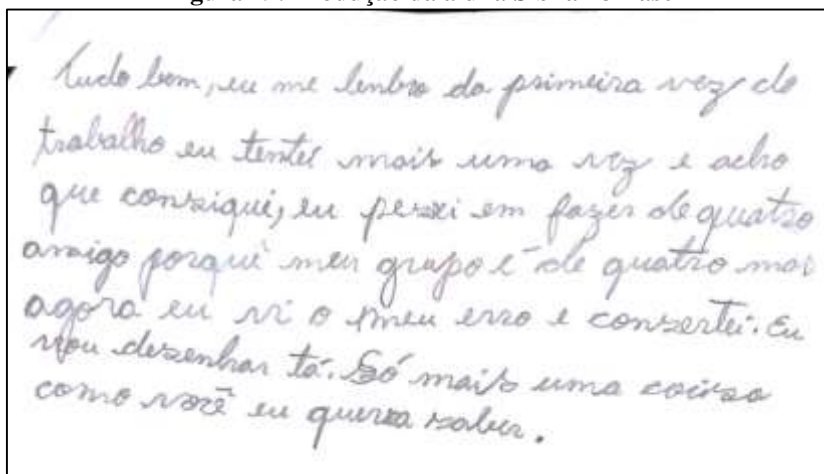 tudo bem, eu me lenbro da primeira vez do
trabalho eu tentei mais uma vez e acho
que consiqui, eu pessei em fazer de quatro
amigo porque meu grupo é de quatro mai
agora eu vi o meu erro e consertei. Eu
vou desenhar tá. Só mais uma coirsa
como você eu queria saber.